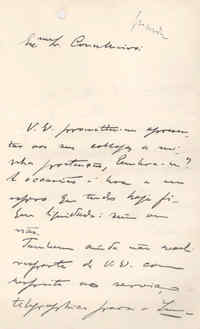 Exmo Sr. Conselheiro:
V. V. prometteu-me apresen-
tar aos seus collegas a mi-
nha pretensão, lembra-se?
A occasião é boa e eu
espero que tudo hoje fi-
que liquidado: sim ou
não.
Tambem ainda não recebi
resposta de V. V. com
respeito ao serviço
telegraphico para o